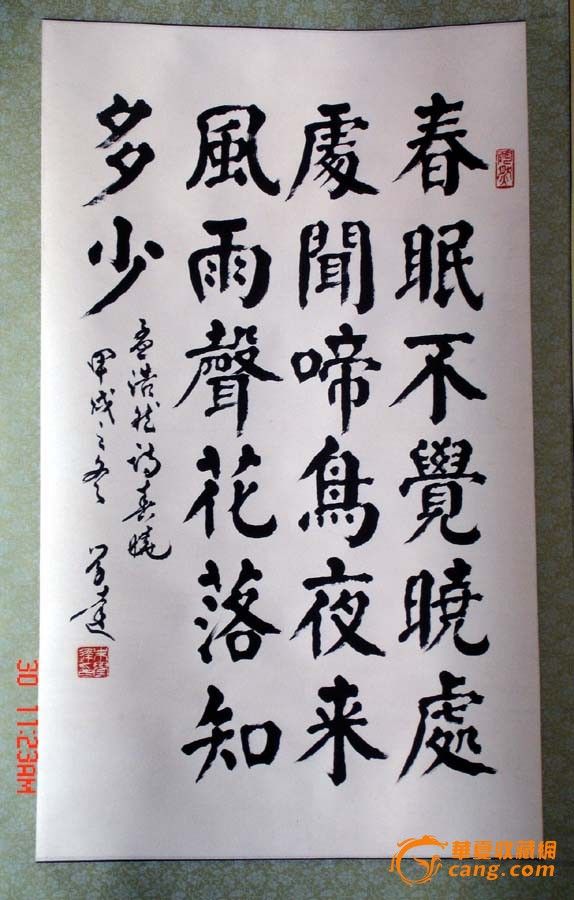 春眠不覺曉處
處聞啼鳥夜来
風雨聲花落知
多少
孟浩然詩春曉
甲戌之冬
30 11:23AM
華夏收藏網
cang.com